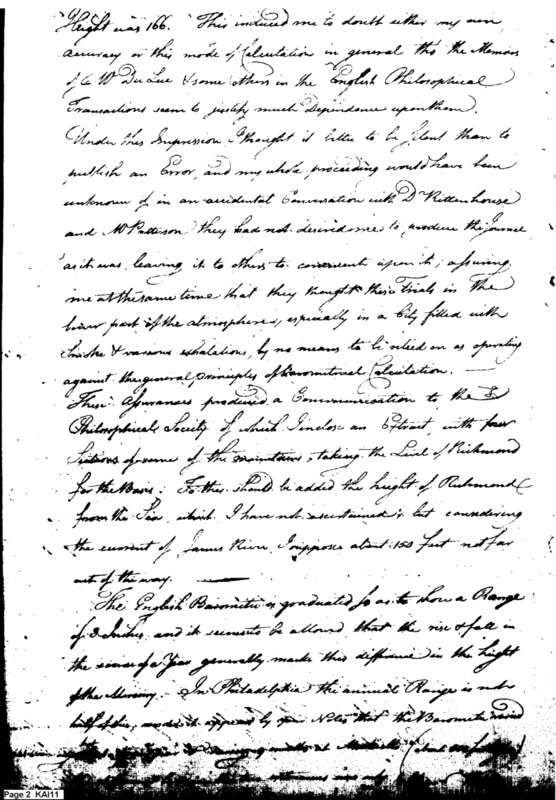 Height was 166. This induced me to doubt either my own
accuracy or this mode of Calculation in general tho the Memoirs
of Mr. De Luc & some others in the English Philosophical
Transactions seem to justify much Dependance upon them.
Under this Impression I thought it better to be silent than to
publish an Error, and my whole proceeding would have been
unknown if in an accidental Conversation with Dr Rittenhouse
and Mr Patterson they had not desired me to produce the Journal
as it was, leaving it to others to comment upon it; assuring
me at the same time that they thought these Trials in the
lower part of the atmosphere, especially in a City filled with
Smoke & various exhalations, by no means to be relied on as operating
against the general principles of Barometrical Calculation. —
These Assurances produced a Communication to the
Philosophical Society of which I inclose an Extract, with four
Stations of some of the mountains, taking the Level of Richmond
for the Base. To this should be added the height of Richmond
from the Sea which I have not ascertained; but considering
the current of James River I suppose about 150 feet not far
out of the way. —
The English Barometer is graduated so as to show a Range
of 3 Inches, and it seems to be allowed that the rise & fall in
the course of a Year generally makes this difference in the height
of the Mercury. In Philadelphia the annual Range is not
half of this, and it appears by your Notes that the Barometer
Page 2 KAI11